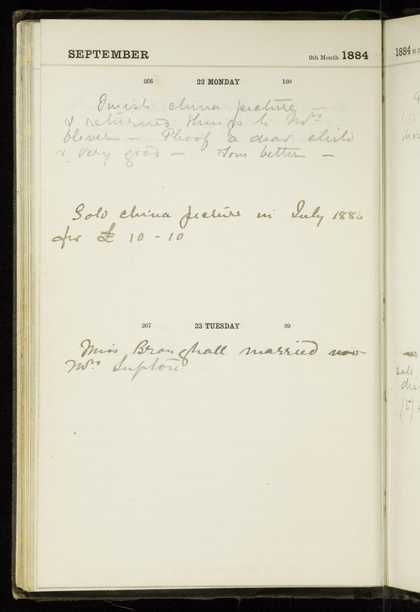 SEPTEMBER 9th Month 1884
266 22 MONDAY 100
Finish china picture —
& returned things to Mrs
— Phoof a dear child
& very good — Tom better —
Sold china picture in July 1886
for £ 10 - 10
267 23 TUESDAY 99
Miss Branghall married now
Mrs Lupton
1884